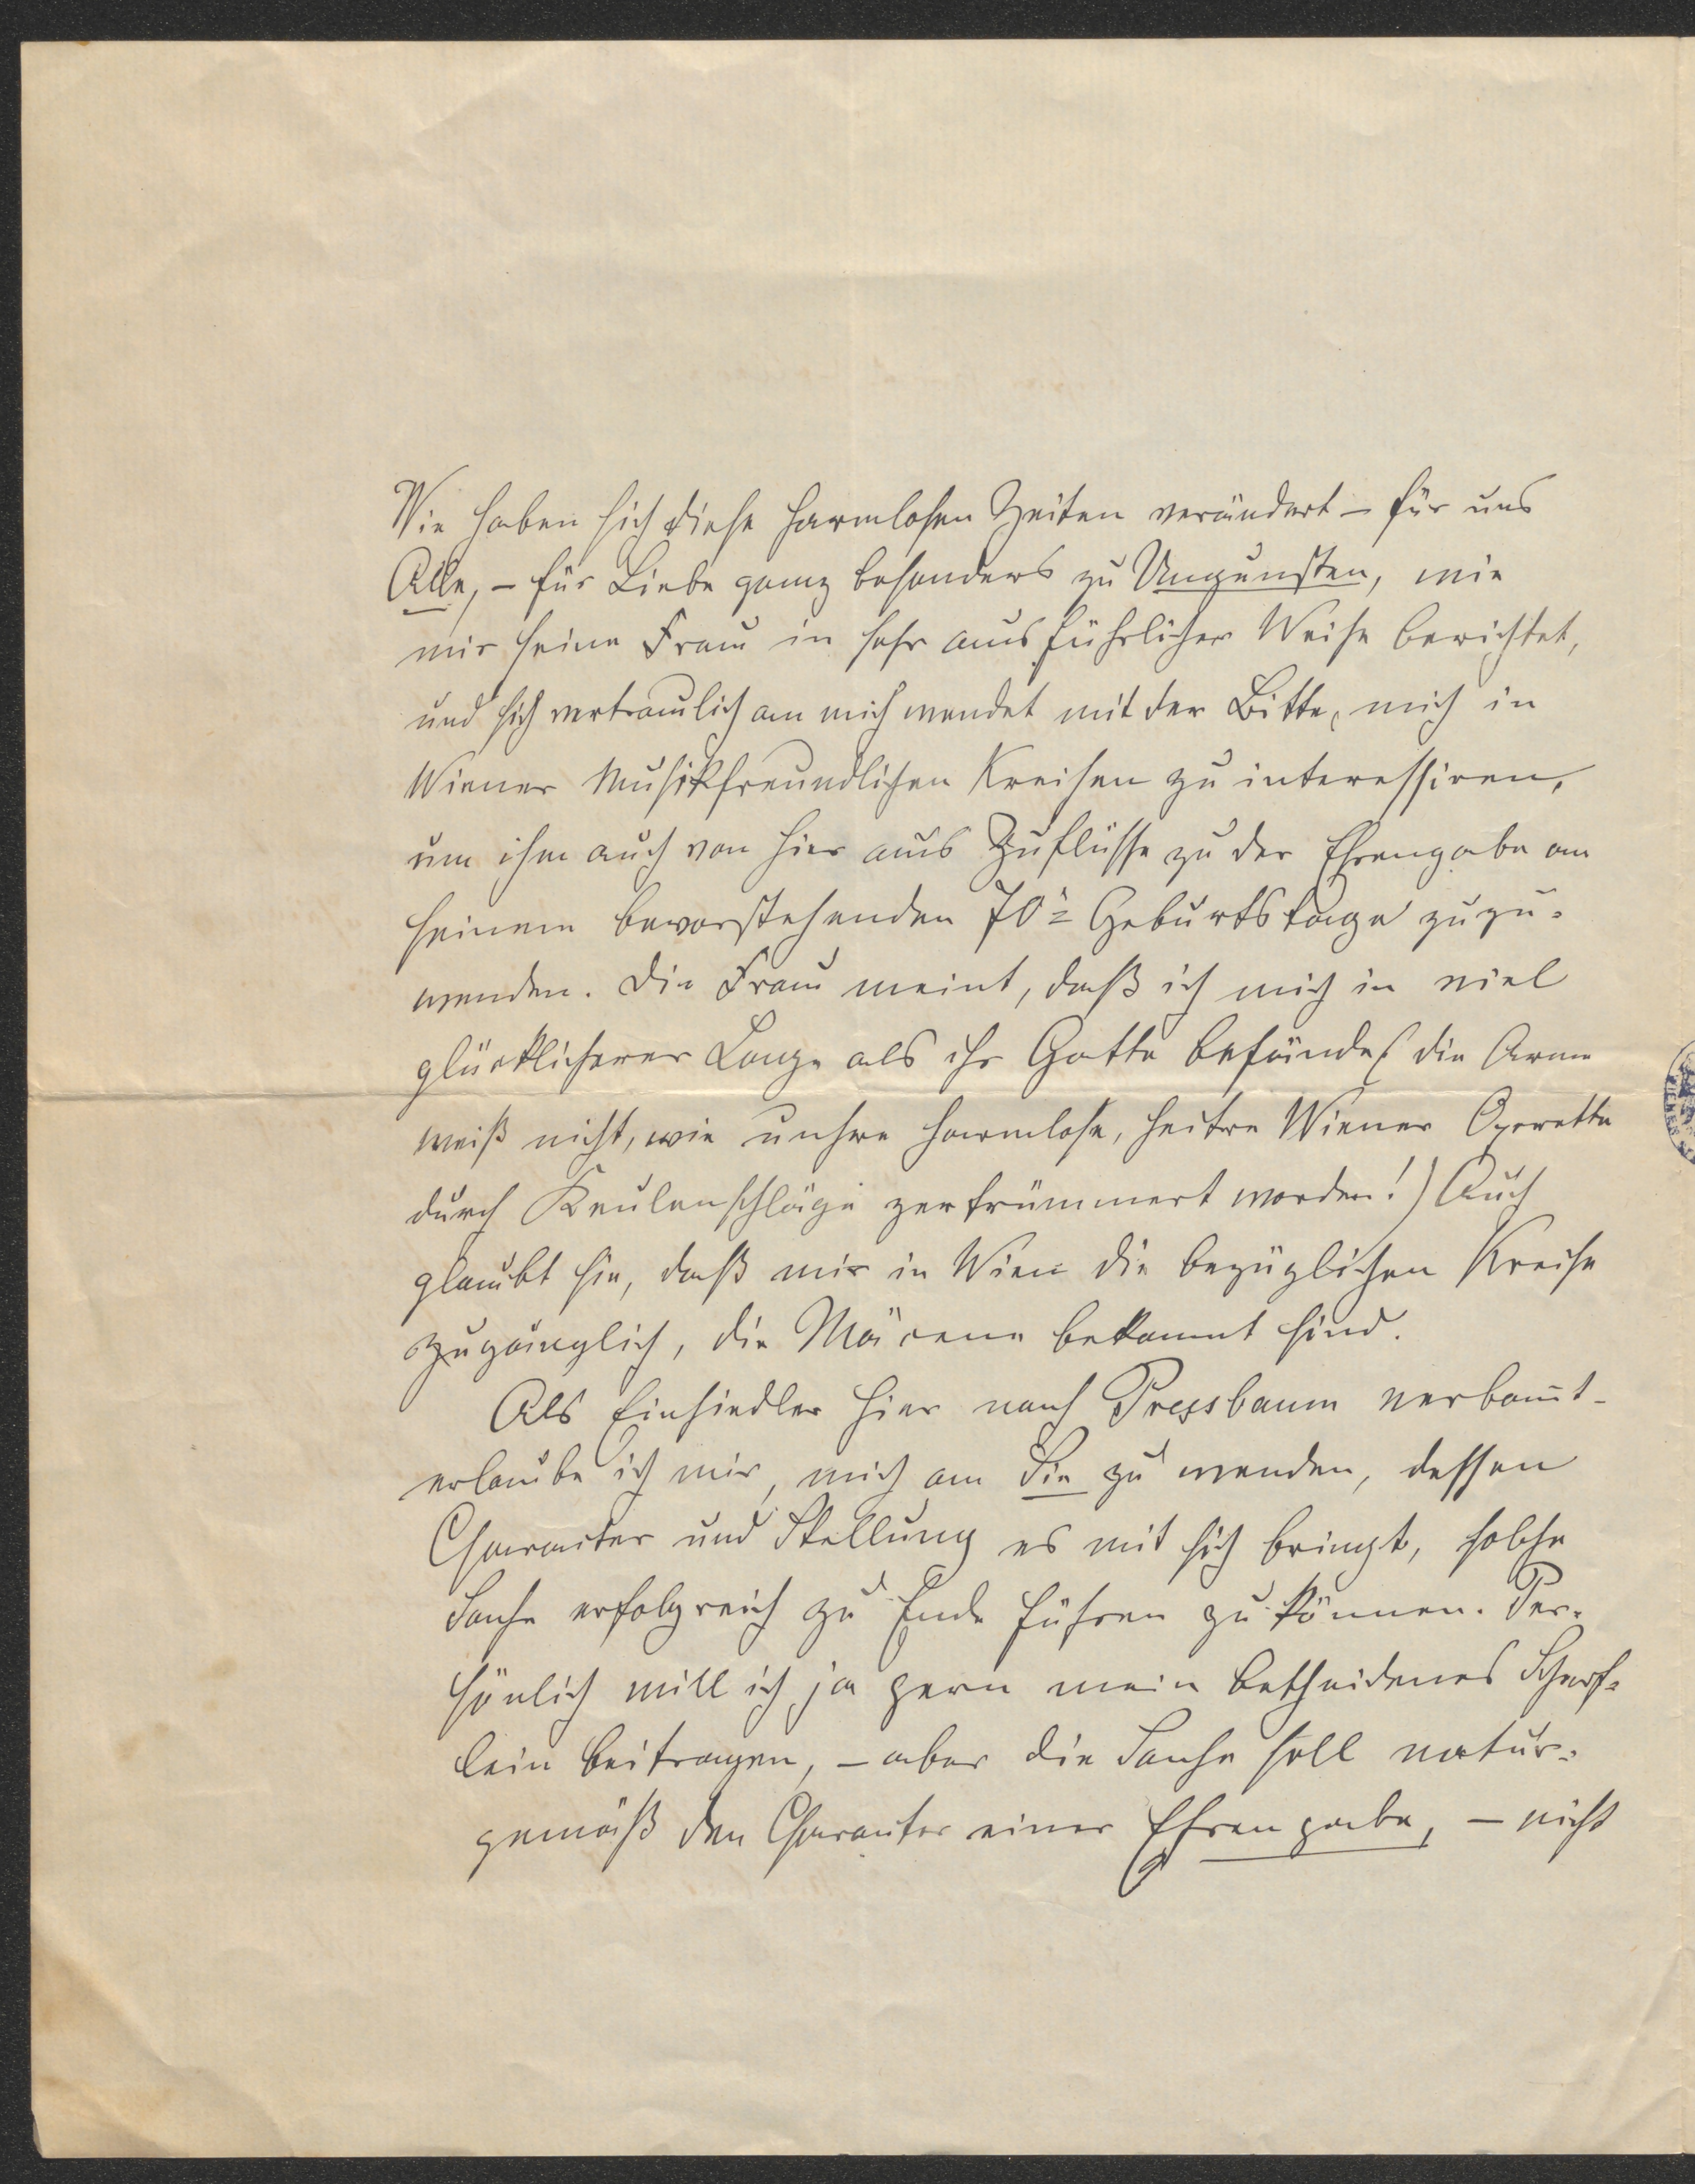 Wie haben sich diese harmlosen Zeiten verändert – für uns
Alle, – für Liebe ganz besonders zu Ungunsten, wie
mir seine Frau in sehr ausführlicher Weise berichtet,
und sich vertraulich an mich wendet mit der Bitte, mich in
Wiener Musikfreundlichen Kreisen zu interessiren,
um ihm auch von hier aus Zuflüsse zu der Ehrengabe an
seinem bevorstehenden 70. Geburtstage zuzu=
wenden. Die Frau meint, daß ich mich in viel
glücklicherer Lage als ihr Gatte befände (die Arme
weiß nicht, wie unsere harmlose, heitre Wiener Operette
durch Keulenschläge zertrümmert worden!) Auch
glaubt sie, daß mir in Wien die bezüglichen Kreise
zugänglich, die Mäcene bekannt sind.
Als Einsiedler hier nach Pressbaum verbannt-
erlaube ich mir, mich an Sie zu wenden, dessen
Character und Stellung es mit sich bringt, solche
Sache erfolgreich zu Ende führen zu können. Per=
sönlich will ich ja gern mein bescheidenes Scherf=
lein beitragen, – aber die Sache soll natur=
gemäß den Character einer Ehrengabe, – nicht